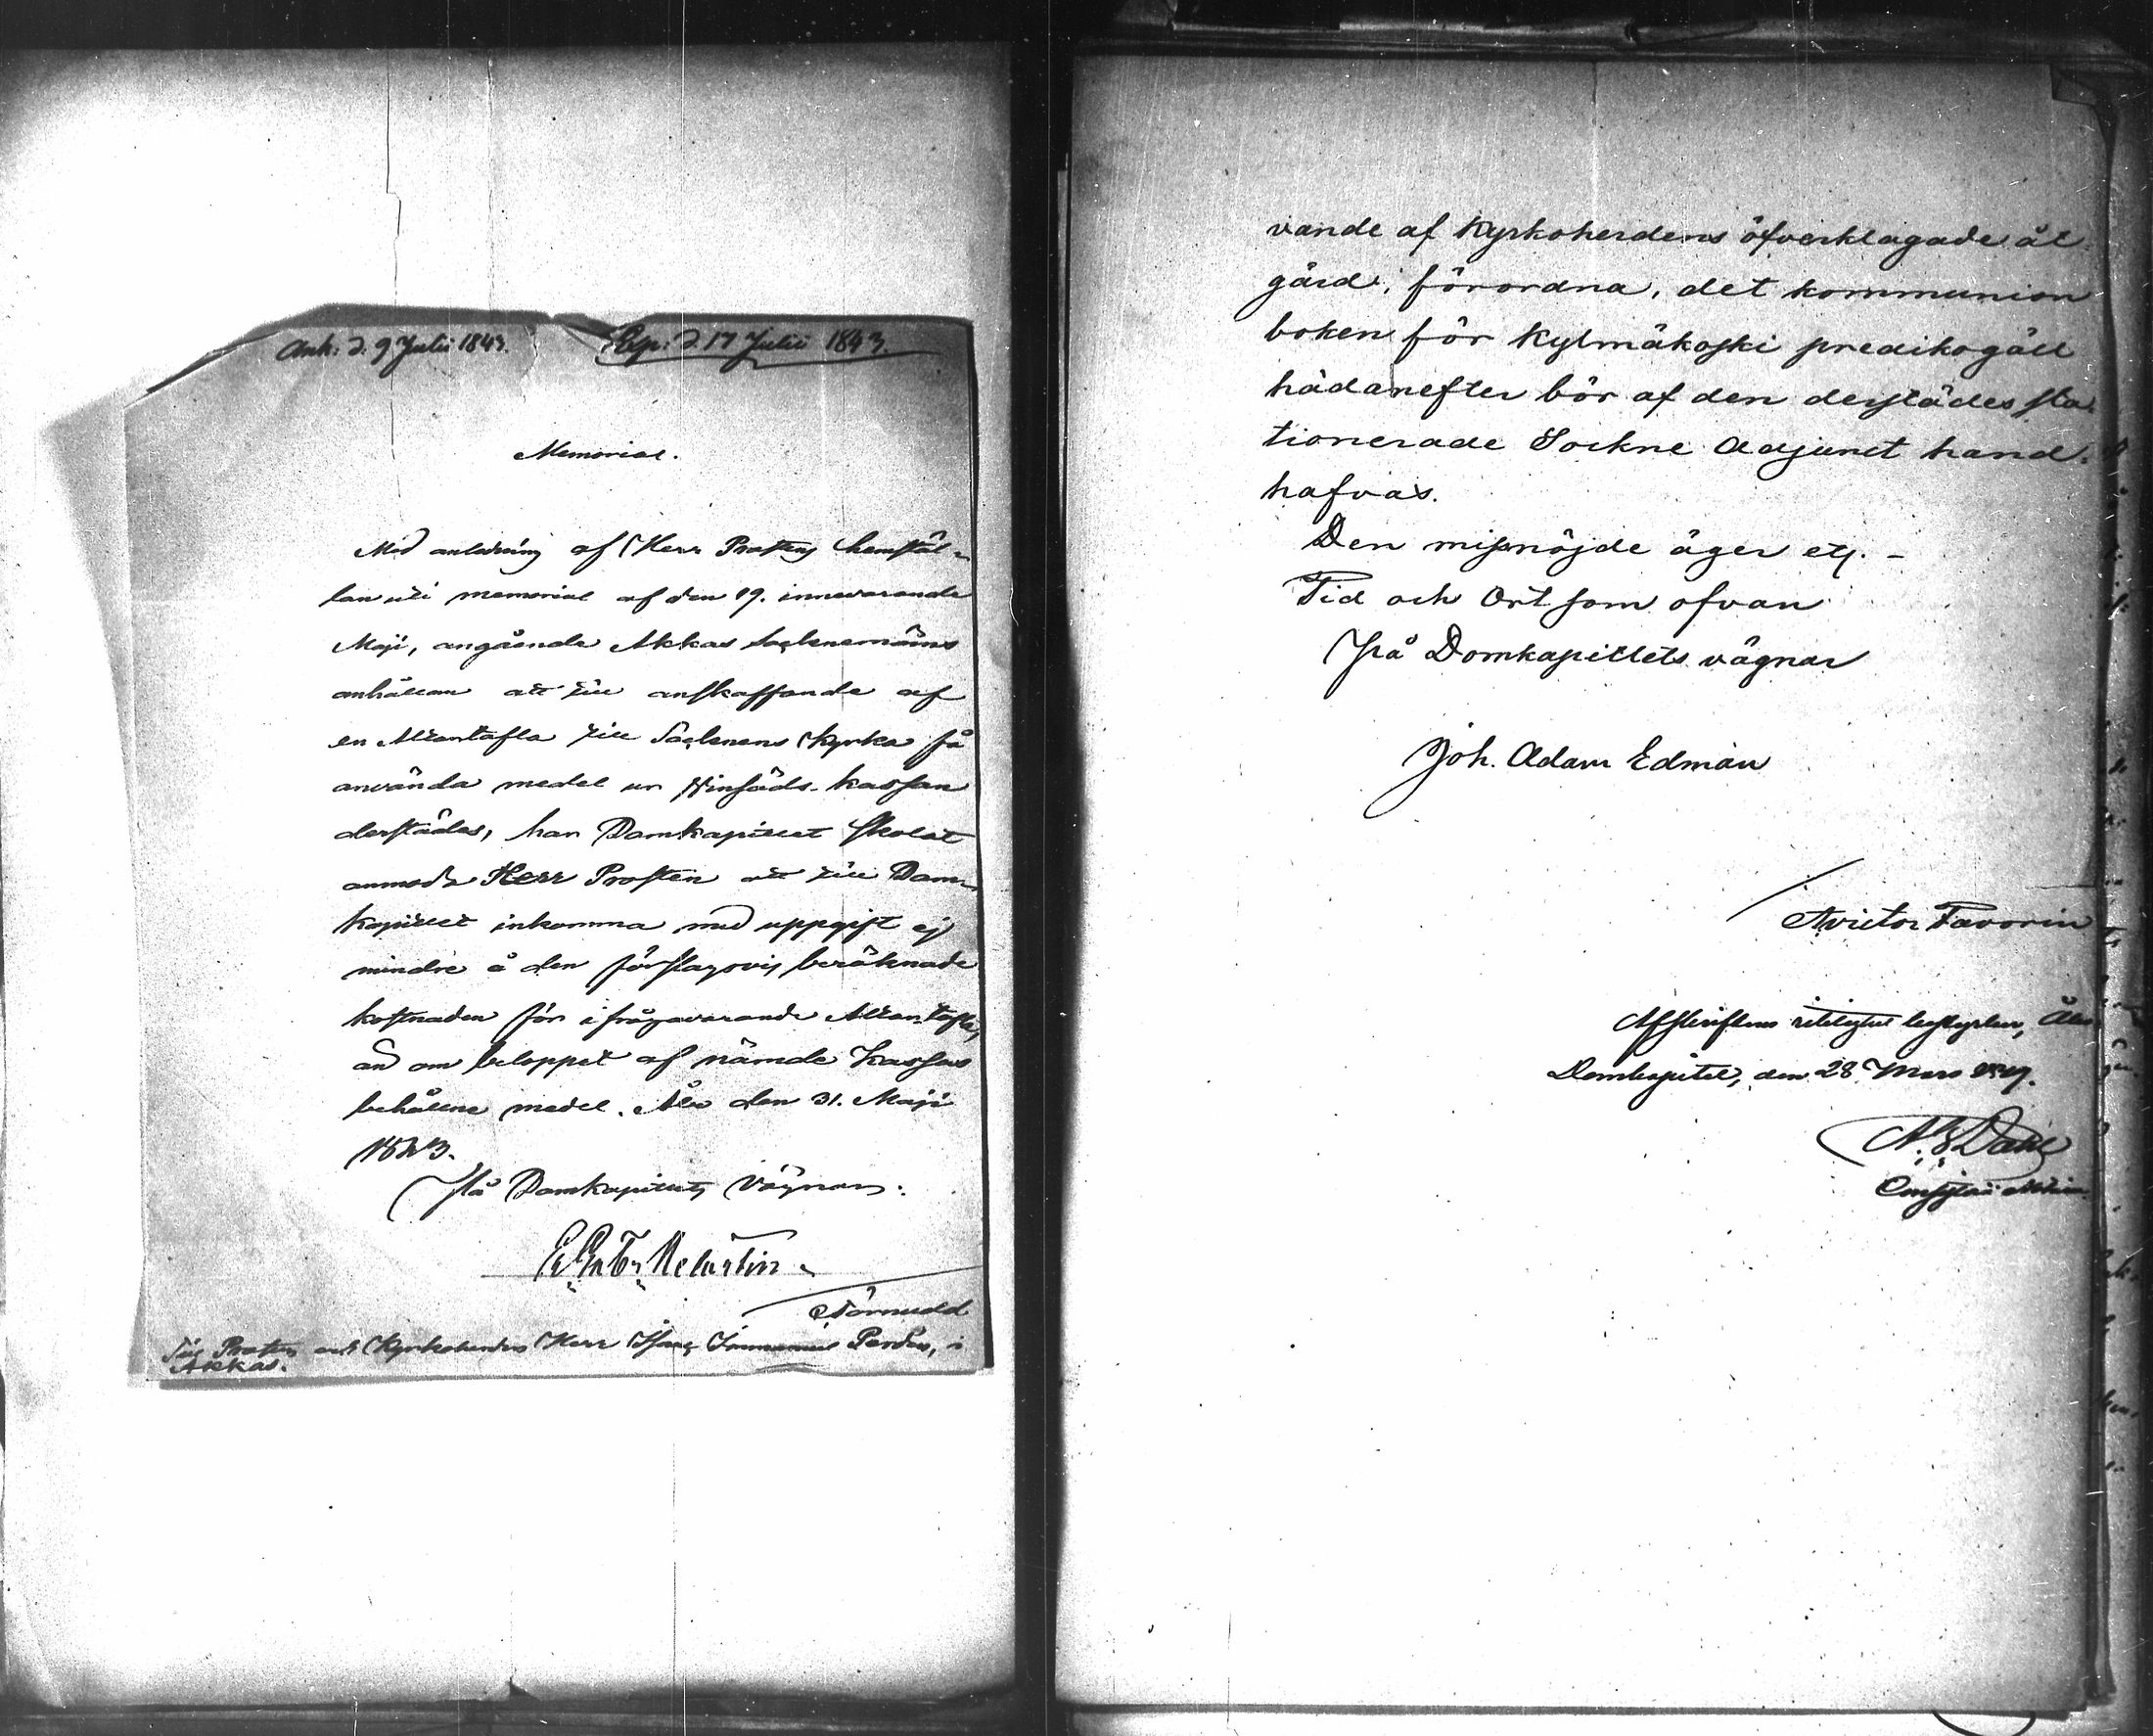 Ank: d. 9 Julii 1843.
Exp: d. 17 Julii 1843.
Memorial.
Med anledning af Herr Prostens hemstäl-
lan uti memorial af den 19. innevarande
Maji, angående Akkas Sockenemäns
anhållan att till anskaffande af
en Altartafla till Sockenens Kyrka få
använda medel ur Vinsäds-kassan
derstädes, har Domkapitlet skolat
anmoda Herr Prosten att till Dom-
kapitlet inkomma med uppgift ej
mindre å den förslagsvis beräknade
kostnaden för ifrågavarande Altar-tafla,
än om beloppet af nämde Kassas
behållne medel. Åbo den 31. Maji
1843.
På Domkapitlets vägnar:
E. Gabr. Melartin.
Törnudd
Till Prosten och Kyrkoherden Herr Isaac Immanuel Perdén, i
Akkas.
vande af Kyrkoherdens öfverklagade åt-
gärd, förordna, det kommunion
boken för Kylmäkoski predikogäll
hädanefter bör af den derstädes sta-
tionerade Sockne Adjunct hand-
hafvas.
Den missnöjde äger etc. –
Tid och Ort som ofvan
På Domkapitlets vägnar
Joh. Adam Edman
Avictor Favorin
Afskriftens riktighet bestyrker, Åbo
Domkapitel, den 28 Mars
Dahl